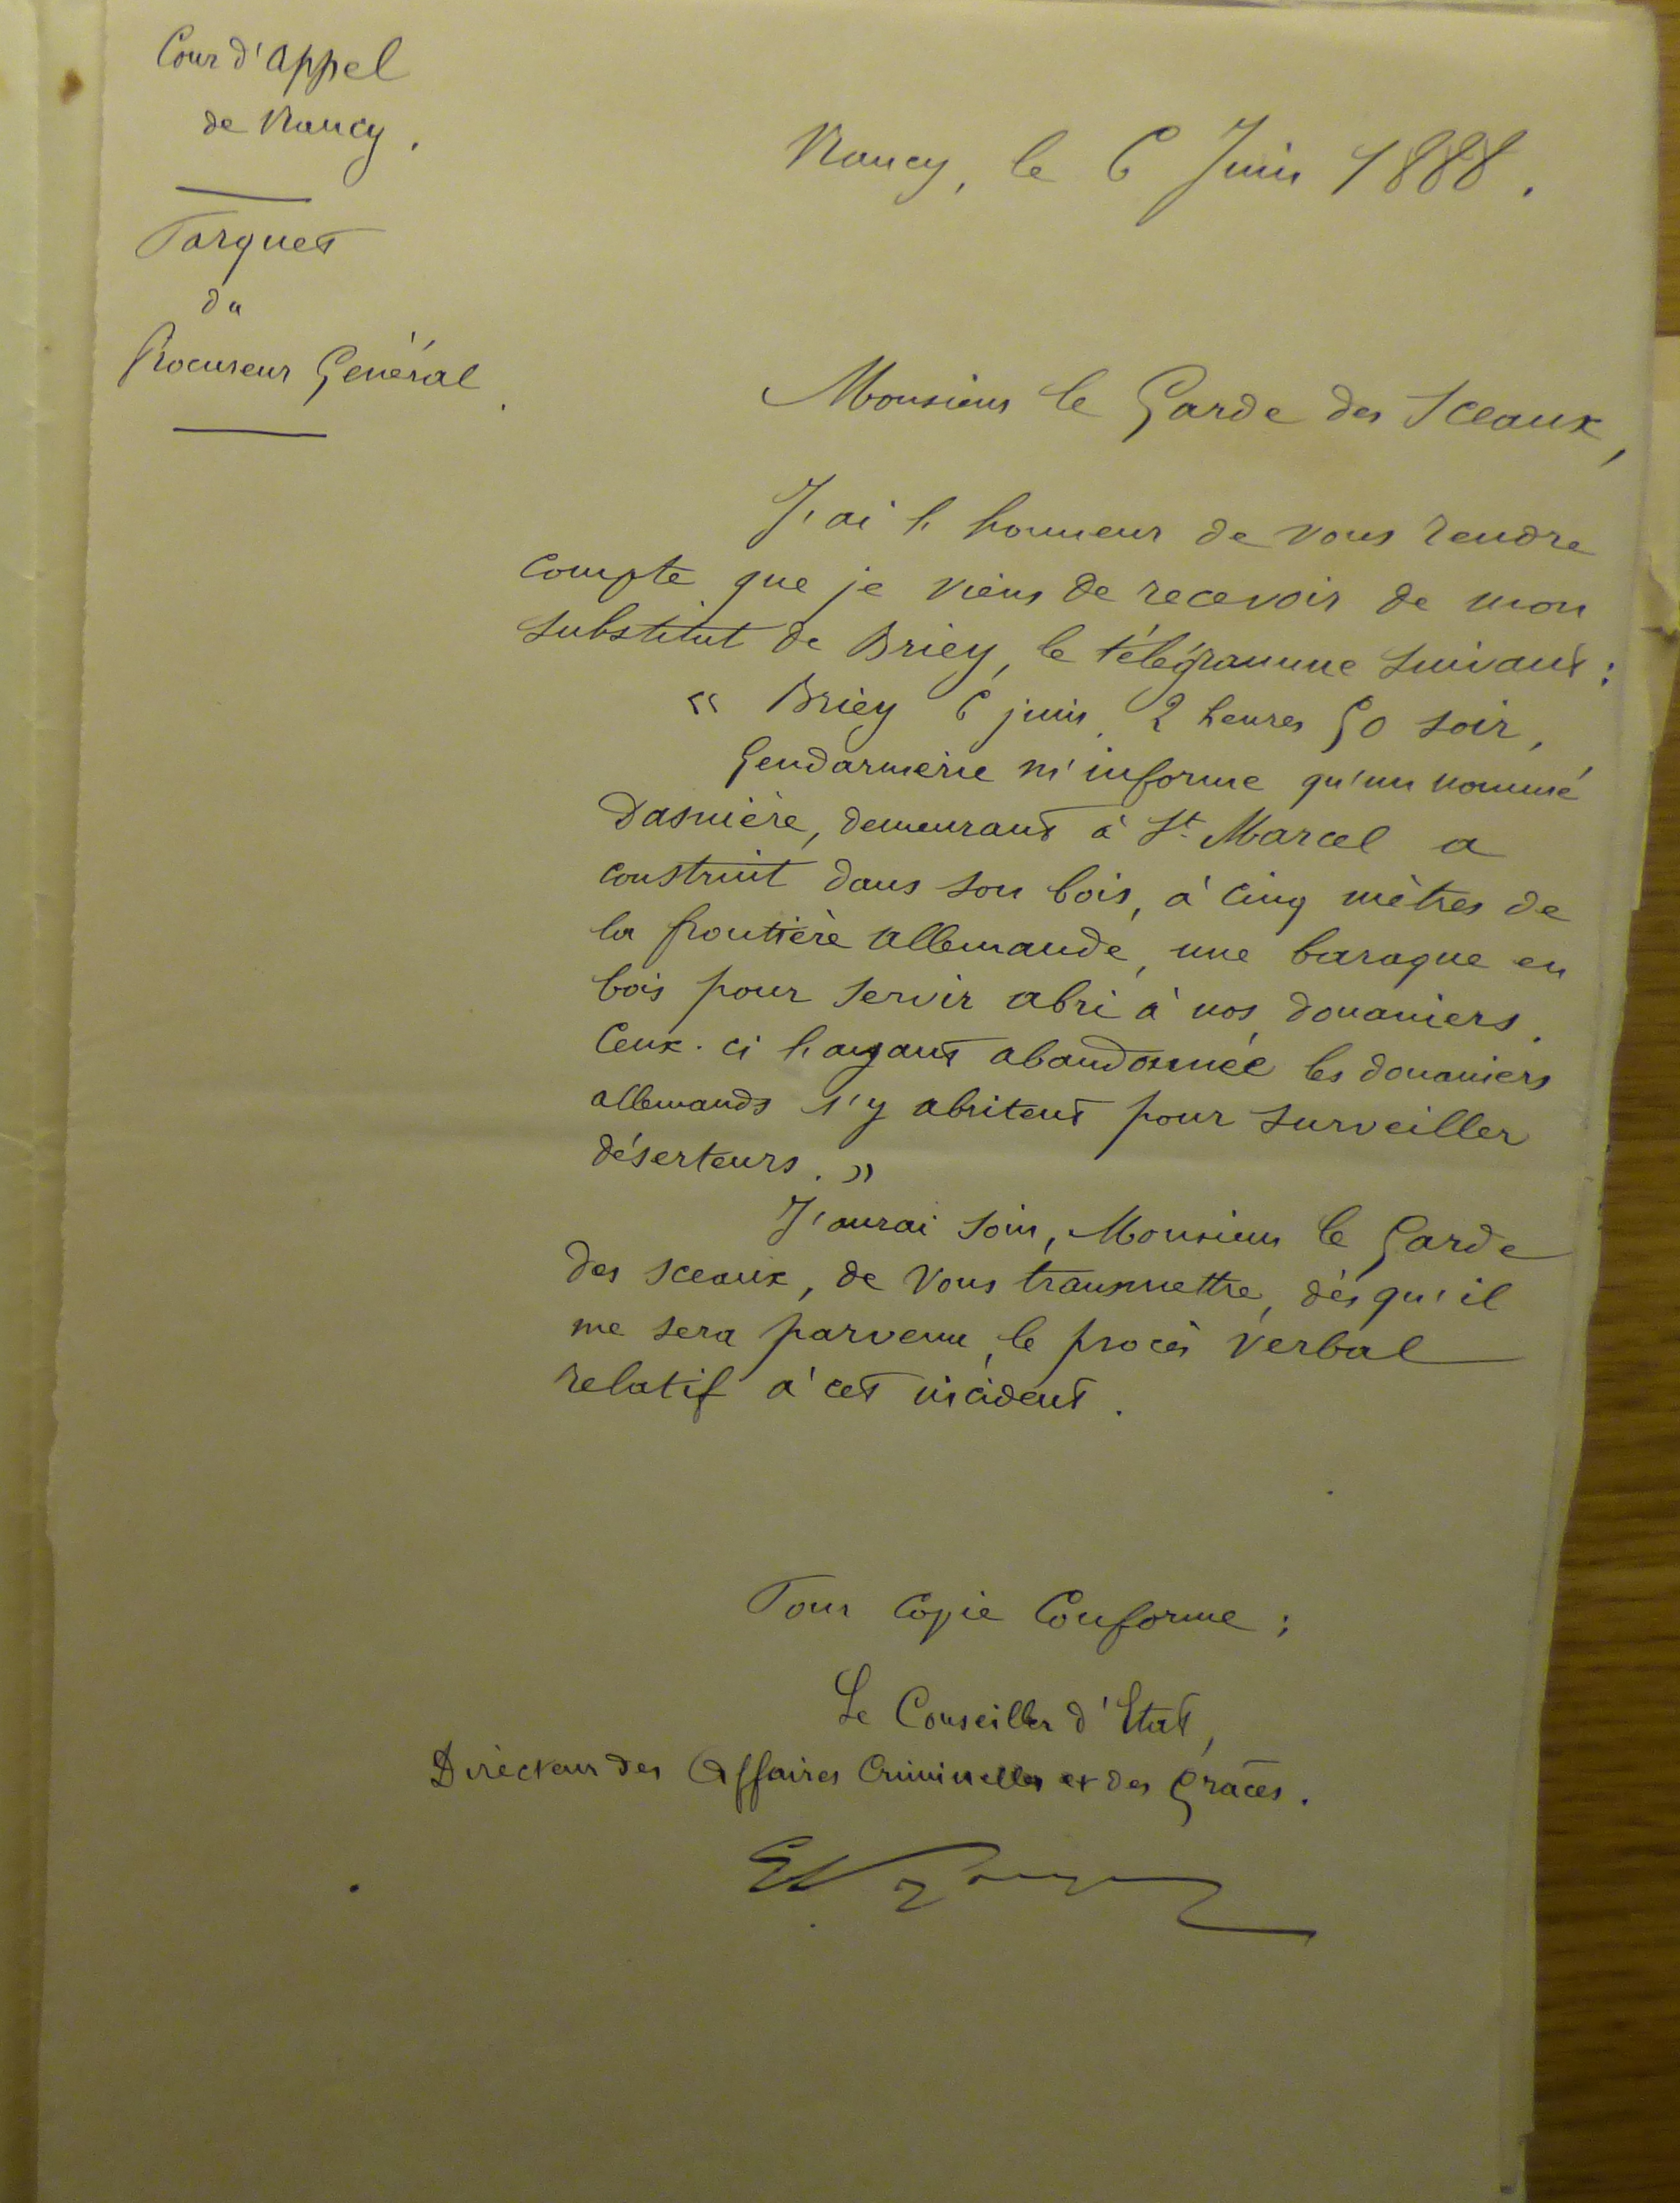 Cour d'Appel
de Nancy.
Parquet
du
Procureur Général.
Nancy, le 6 Juin 1888.
Monsieur le Garde des Sceaux,
J'ai l'honneur de vous rendre
compte que je viens de recevoir de mon
substitut de Briey, le télégramme suivant :
« Briey 6 juin. 2 heures 50 soir,
Gendarmerie m'informe qu'un nommé
Dasnière, demeurant à St Marcel a
construit dans son bois, à cinq mètres de
la frontière allemande, une baraque en
bois pour servir abri à nos douaniers.
Ceux-ci l'ayant abandonnée les douaniers
allemands s'y abritent pour surveiller
déserteurs. »
J'aurai soin, Monsieur le Garde
des sceaux, de vous transmettre, dès qu'il
me sera parvenu, le procès verbal
relatif à cet incident.
Pour Copie Conforme :
Le Conseiller d'Etat,
Directeur des Affaires Criminelles et des Grâces.